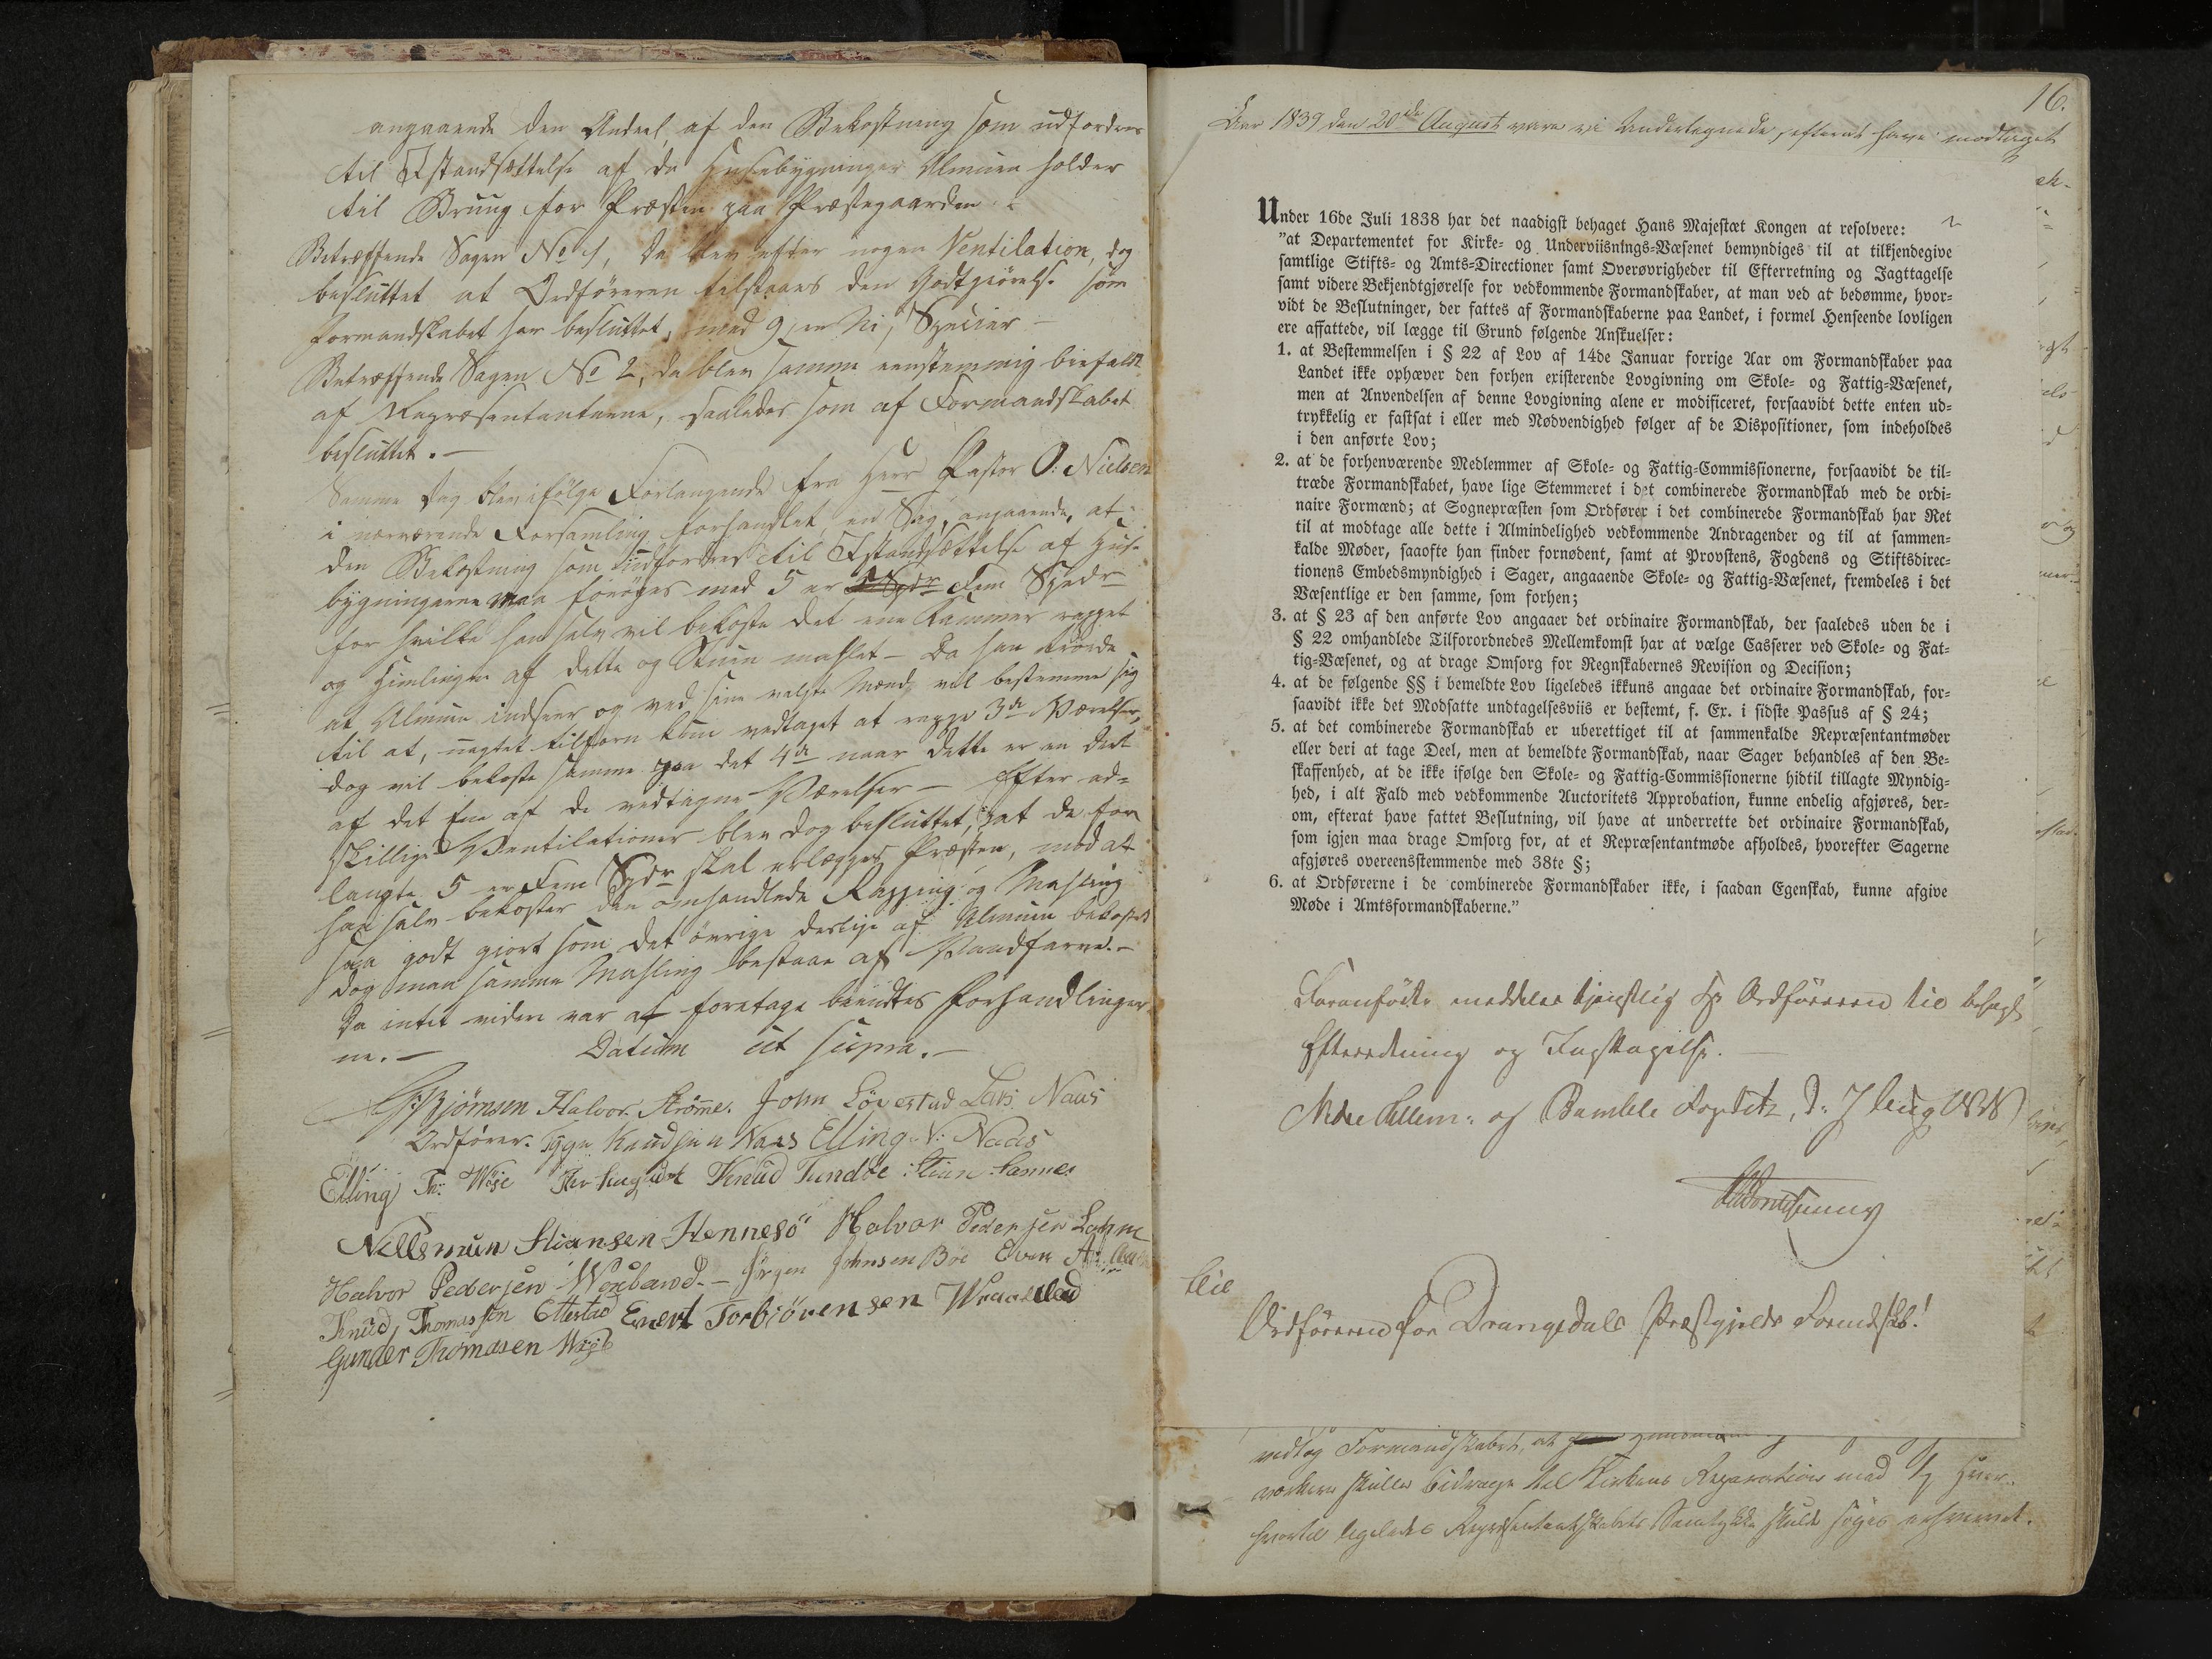 angaaende den Andeel af den Bekostning som udfordres
til Istandsættelse af de Huusebygninger Almuen holder
til Brug for Præsten paa Præstegaarden
Betræffende Sagen No 1, da blev efter nogen Ventilation, dog
besluttet at Ordføreren tilstaaes den Godtgiørelse som
Formandskabet har besluttet, med 9, er Ni, Specier
Betræffende Sagen No 2, da blev samme eenstemmig biefaldt
af Repræsentanterne, saaledes som af Formandskabet
besluttet. -
Samme Dag blev ifølge Forlangende fra Herr Pastor O: Nielsen
i nærværende Forsamling forhandlet en Sag, angaaende, at
den Bekostning som udfordres til Istandsættelse af Huse-
bygningerne maa forøges med 5 er Fem Spdr
for hvilke han selv vil bekoste det ene Kammer rappet
og Himlingen af dette og Stuen mahlet - Da han troede
at Almuen indseer og ved sine valgte Mænd vil bestemme sig
til at, uagtet tilforn kun vedtaget at rappe 3de Værelser,
dog vil bekoste samme paa det 4de naar dette er en Deel
af det Ene af de vedtagne Værelser - Efter ad-
skillige Ventilationer blev dog besluttet, at de for
langte 5 er Fem Spdr skal erlægges Præsten, mod at
han selv bekoster den omhandlede Rapping og Mahling
saa godt giort som det øvrige deslige af Almuen bekostes
dog maa samme Mahling bestaae af Vandfarve. -
Da intet videre var at foretage beendtes Forhandlinger
ne. - Datum ut supra. -
G. Bjørnsen Halvor Strømme. John Løvestad Lars Naas
Ordfører. Tyge Knudsen Naas Elling N: Naas
Elling Th: Knud Tundøe Stian Sannes
Nillsmun Stiansen Hennesö Halvor Pedersen
Halvor Pedersen - Jørgen Johnsen Böe Even A:
Knud Thomassen Ettestad Evert Torbiörensen
Gunder Thomasen
16.
Aar 1839 den 20de August vare vi Undertegnede, efterat have modtaget
Under 16de Juli 1838 har det naadigst behaget Hans Majestæt Kongen at resolvere:
"at Departementet for Kirke- og Underviisnings-Væsenet bemyndiges til at tilkjendegive
samtlige Stifts- og Amts-Directioner samt Overøvrigheder til Efterretning og Jagttagelse
samt videre Bekjendtgjørelse for vedkommende Formandskaber, at man ved at bedømme, hvor-
vidt de Beslutninger, der fattes af Formandskaberne paa Landet, i formel Henseende lovligen
ere affattede, vil lægge til Grund følgende Anskuelser:
1. at Bestemmelsen i § 22 af Lov af 14de Januar forrige Aar om Formandskaber paa
Landet ikke ophæver den forhen existerende Lovgivning om Skole- og Fattig-Væsenet,
men at Anvendelsen af denne Lovgivning alene er modificeret, forsaavidt dette enten ud-
trykkelig er fastsat i eller med Nødvendighed følger af de Dispositioner, som indeholdes
i den anførte Lov;
2. at de forhenværende Medlemmer af Skole- og Fattig-Commissionerne, forsaavidt de til-
træde Formandskabet, have lige Stemmeret i det combinerede Formandskab med de ordi-
naire Formænd; at Sognepræsten som Ordfører i det combinerede Formandskab har Ret
til at modtage alle dette i Almindelighed vedkommende Andragender og til at sammen-
kalde Møder, saaofte han finder fornødent, samt at Provstens, Fogdens og Stiftsdirec-
tionens Embedsmyndighed i Sager, angaaende Skole- og Fattig-Væsenet, fremdeles i det
Væsentlige er den samme, som forhen;
3. at § 23 af den anførte Lov angaaer det ordinaire Formandskab, der saaledes uden de i
§ 22 omhandlede Tilforordnedes Mellemkomst har at vælge Casserer ved Skole- og Fat-
tig-Væsenet, og at drage Omsorg for Regnskabernes Revision og Decision;
4. at de følgende §§ i bemeldte Lov ligeledes ikkuns angaae det ordinaire Formandskab, for-
saavidt ikke det Modsatte undtagelsesviis er bestemt, f. Ex. i sidste Passus af § 24;
5. at det combinerede Formandskab er uberettiget til at sammenkalde Repræsentantmøder
eller deri at tage Deel, men at bemeldte Formandskab, naar Sager behandles af den Be-
skaffenhed, at de ikke ifølge den Skole- og Fattig-Commissionerne hidtil tillagte Myndig-
hed, i alt Fald med vedkommende Auctoritets Approbation, kunne endelig afgjøres, der-
om, efterat have fattet Beslutning, vil have at underrette det ordinaire Formandskab,
som igjen maa drage Omsorg for, at et Repræsentantmøde afholdes, hvorefter Sagerne
afgjøres overeensstemmende med 38te §;
6. at Ordførerne i de combinerede Formandskaber ikke, i saadan Egenskab, kunne afgive
Møde i Amtsformandskaberne."
Foranførte meddeles tjenstlig Hr Ordføreren til behagl
Efterretning og Iagttagelse.
Nedre Tellem: og Bamble Fogderie, d: 7 Aug 1838
Til
Ordføreren for Drangedals Præstgjelds Formdskb!
vedtog Formandskabet, at
skulle bidrage til Kirkens Reparation med
hvortil ligeledes Repræsentantskabets Samtykke skulde søges erhvervet.